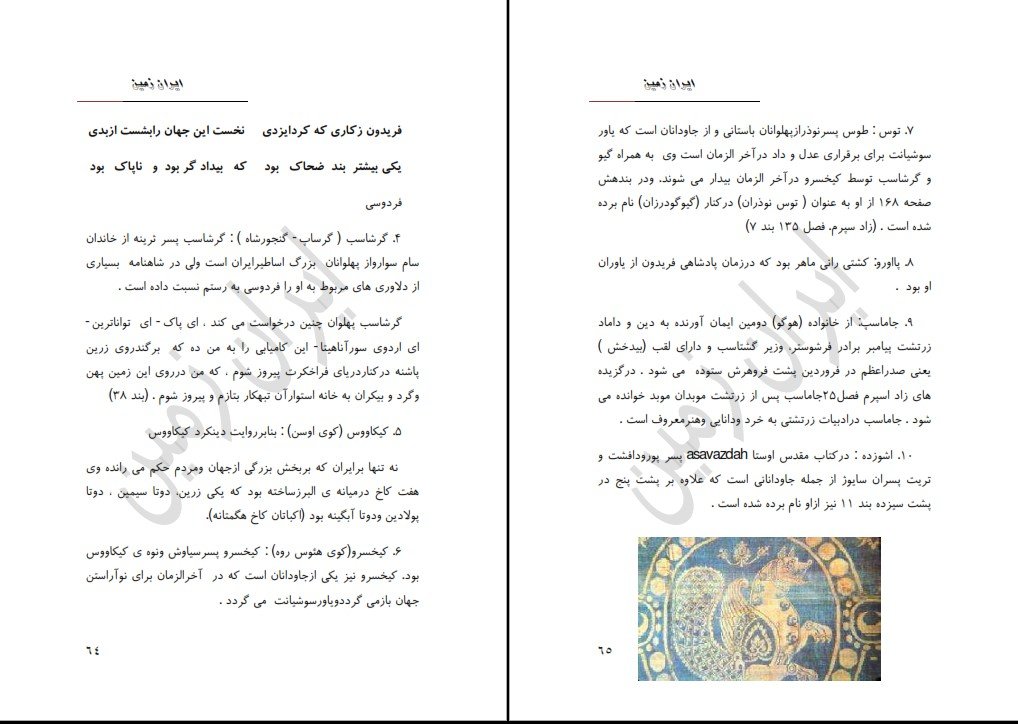 ایران زمین
فریدون زکاری که کردایزدی نخست این جهان رابشست ازبدی
یکی بیشتر بند ضحاک بود که بیداد گر بود و ناپاک بود
فردوسی
۴. گرشاسب ( گرساپ - گنجورشاه ) : گرشاسب پسر ثرینه از خاندان
سام سوارواز پهلوانان بزرگ اساطیرایران است ولی در شاهنامه بسیاری
از دلاوری های مربوط به او را فردوسی به رستم نسبت داده است .
گرشاسب پهلوان چنین درخواست می کند ، ای پاک - ای تواناترین -
ای اردوی سورآناهیتا - این کامیابی را به من ده که برگندروی زرین
پاشنه درکناردریای فراخکرت پیروز شوم ، که من درروی این زمین پهن
وگرد و بیکران به خانه استوارآن تبهکار بتازم و پیروز شوم . (بند ۳۸)
۵. کیکاووس (کوی اوسن) : بنابرروایت دینکرد کیکاووس
نه تنها برایران که بربخش بزرگی ازجهان ومردم حکم می رانده وی
هفت کاخ درمیانه ی البرزساخته بود که یکی زرین، دوتا سیمین ، دوتا
پولادین ودوتا آبگینه بود (اکباتان کاخ هگمتانه).
۶. کیخسرو(کوی هئوس روه) : کیخسرو پسرسیاوش ونوه ی کیکاووس
بود. کیخسرو نیز یکی ازجاودانان است که در آخرالزمان برای نوآراستن
جهان بازمی گرددویاورسوشیانت می گردد .
٦٤
ایران زمین
۷. توس : طوس پسرنوذرازپهلوانان باستانی و از جاودانان است که یاور
سوشیانت برای برقراری عدل و داد درآخر الزمان است وی به همراه گیو
و گرشاسب توسط کیخسرو درآخر الزمان بیدار می شوند. ودر بندهش
صفحه ۱۶۸ از او به عنوان ( توس نوذران) درکنار (گیوگودرزان) نام برده
شده است . (زاد سپرم، فصل ۱۳۵ بند ۷)
۸. پااورو: کشتی رانی ماهر بود که درزمان پادشاهی فریدون از یاوران
او بود .
۹. جاماسب: از خانواده (هوگو) دومین ایمان آورنده به دین و داماد
زرتشت پیامبر برادر فرشوستر، وزیر گشتاسب و دارای لقب (بیدخش )
یعنی صدراعظم در فروردین پشت فروهرش ستوده می شود . درگزیده
های زاد اسپرم فصل۲۵جاماسب پس از زرتشت موبدان موبد خوانده می
شود . جاماسب درادبیات زرتشتی به خرد ودانایی وهنرمعروف است .
۱۰. اشوزده : درکتاب مقدس اوستا asavazdah پسر پورودافشت و
تریت پسران سایوژ از جمله جاودانانی است که علاوه بر پشت پنج در
پشت سیزده بند ۱۱ نیز ازاو نام برده شده است .
٦٥
ایران زمین
ایران زمین